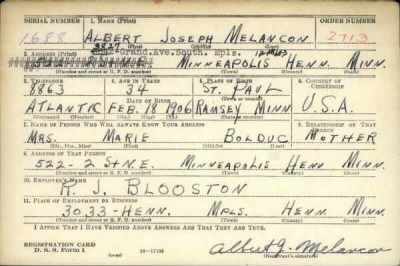 SERIAL NUMBER 1. NAME (Print) ORDER NUMBER
1688 ALBERT JOSEPH MELANCON 2713
(First) (Middle) (Last)
3827 -Grand.Ave.South. Mpls.
2. ADDRESS (Print)
522 MINNEAPOLIS HENN. MINN.
(Number and street or R. F. D. number) (Town) (County) (State)
3. TELEPHONE 4. AGE IN YEARS 5. PLACE OF BIRTH 6. COUNTRY OF CITIZENSHIP
8863 34 ST. PAUL
DATE OF BIRTH
ATLANTIC FEB. 18 1906 RAMSEY MINN U.S.A.
(Exchange) (Number) (Mo.) (Day) (Yr.) (Town or county) (State or country)
7. NAME OF PERSON WHO WILL ALWAYS KNOW YOUR ADDRESS 8. RELATIONSHIP OF THAT PERSON
MRS. MARIE BOLDUC MOTHER
(Mr., Mrs., Miss) (First) (Middle) (Last)
9. ADDRESS OF THAT PERSON
522- 2 St N.E. MINNEAPOLIS HENN. MINN.
(Number and street or R. F. D. number) (Town) (County) (State)
10. EMPLOYER'S NAME
R. J. BLOOSTON
11. PLACE OF EMPLOYMENT OR BUSINESS
3033-HENN. MPLS. HENN MINN.
(Number and street or R. F. D. number) (Town) (County) (State)
I AFFIRM THAT I HAVE VERIFIED ABOVE ANSWERS AND THAT THEY ARE TRUE.
REGISTRATION CARD
D. S. S. Form 1 Albert J. Melancon
(Registrant's signature)